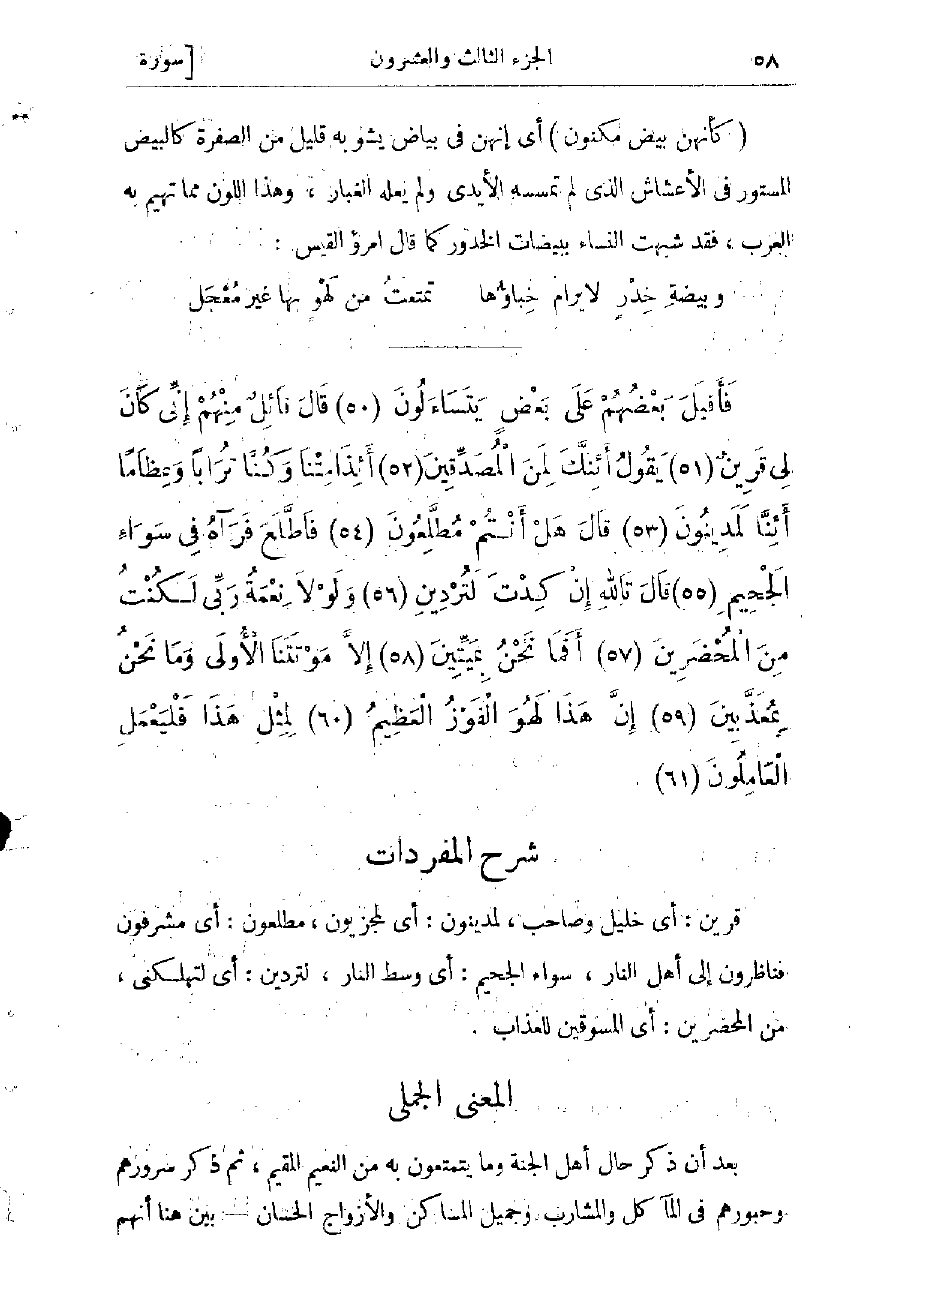 ٥٨ الجزء الثالث والعشرون [سورة
( كأنهن بيض مكنون ) أى إنهن فى بياض يشوبه قليل من الصفرة كالبيض
المستور فى الأعشاش الذى لم تمسسه الأيدى ولم يعله الغبار ، وهذا اللون مما تهيم به
العرب ، فقد شبهت النساء ببيضات الخدور كما قال امرؤ القيس :
وبيضةِ خِدْرٍ لا يرام خِباؤُها تمتعتُ من لَهْوٍ بها غير مُعْجَل
فَأَقْبَلَ بَعْضُهُمْ عَلَى بَعْضٍ يَتَسَاءَلُونَ (٥٠) قَالَ قَائِلٌ مِنْهُمْ إِنِّى كَانَ
لِى قَرِينٌ (٥١) يَقُولُ أَئِنَّكَ لَمِنَ الْمُصَدِّقِينَ (٥٢) أَئِذَا مِتْنَا وَكُنَّا تُرَاباً وَعِظَامًا
أَئِنَّا لَمَدِينُونَ (٥٣) قَالَ هَلْ أَنْتُمْ مُطَّلِعُونَ (٥٤) فَاطَّلَعَ فَرَآهُ فِى سَوَاءِ
الْجَحِيمِ (٥٥) قَالَ تَاللهِ إِنْ كِدْتَ لَتُرْدِينِ (٥٦) وَلَوْلاَ نِعْمَةُ رَبِّى لَكُنْتُ
مِنَ الْمُحْضَرِينَ (٥٧) أَفَمَا نَحْنُ بِمَيِّتِينَ (٥٨) إِلاَّ مَوْتَتَنَا الْأُولَى وَمَا نَحْنُ
بِمُعَذَّبِينَ (٥٩) إِنَّ هَذَا لَهُوَ الْفَوْزُ الْعَظِيمُ (٦٠) لِمِثْلِ هَذَا فَلْيَعْمَلِ
الْعَامِلُونَ (٦١) .
شرح المفردات
قرين : أى خليل وصاحب ، لمدينون : أى لمجزيون ، مطلعون : أى مشرفون
فناظرون إلى أهل النار ، سواء الجحيم : أى وسط النار ، لتردين : أى لتهلكنى ،
من المحضرين : أى المسوقين للعذاب .
المعنى الجملى
بعد أن ذكر حال أهل الجنة وما يتمتعون به من النعيم المقيم ، ثم ذكر سرورهم
وحبورهم فى المآ كل والمشارب وجميل المساكن والأزواج الحسان — بين هنا أنهم